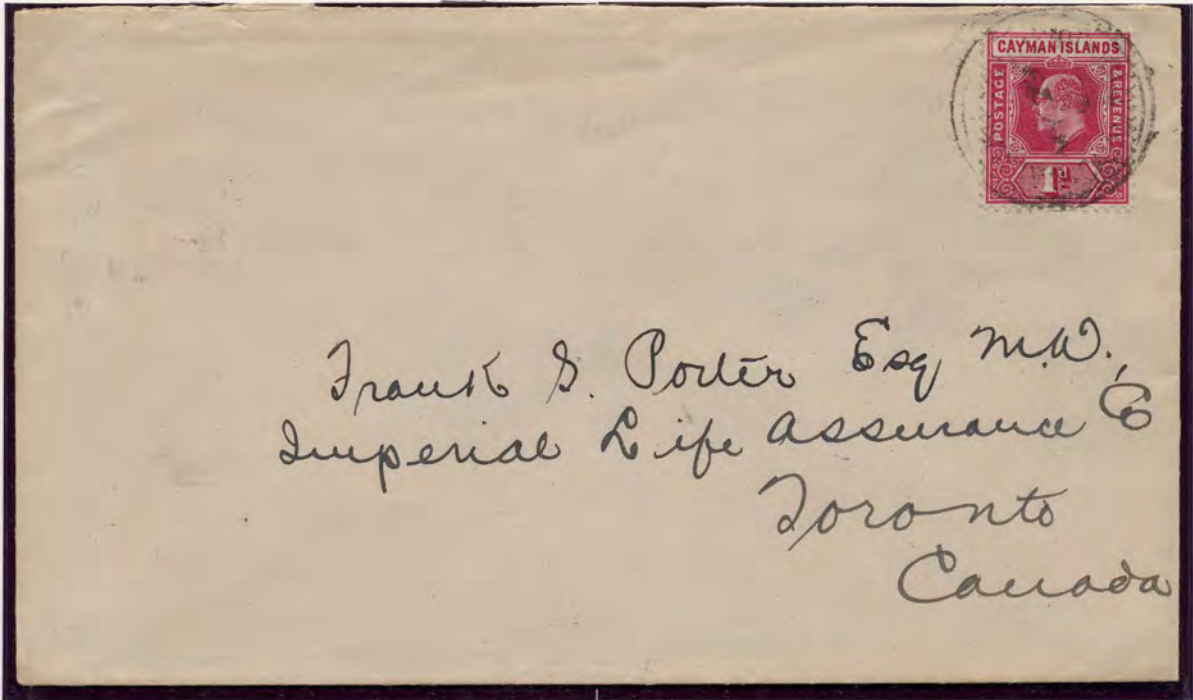 CAYMAN ISLANDS
POSTAGE
& REVENUE
1D
Frank S. Porter Esq M.W.,
Imperial Life Assurance Co
Toronto
Canada